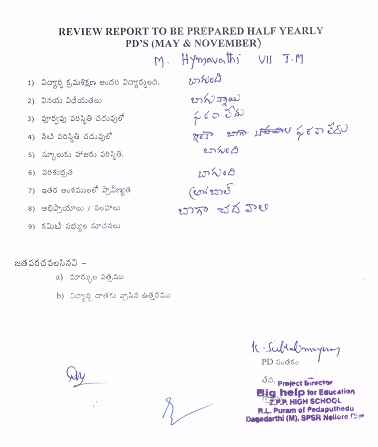 REVIEW REPORT TO BE PREPARED HALF YEARLY
PD'S (MAY & NOVEMBER)
M. Hymavathi VII T.M
1) విద్యార్థి క్రమశిక్షణ అందరి విద్యార్థులది. బాగుంది
2) వినయ విధేయతలు బాగున్నాయి
3) పూర్వపు పరిస్థితి చదువులో ఫరవాలేదు
4) నేటి పరిస్థితి చదువులో బాగా ఫరవాలేదు
5) స్కూలుకు హాజరు పరిస్థితి. బాగుంది
6) పరిశుభ్రత బాగుంది
7) ఇతర అంశములలో ప్రావీణ్యత
8) అభిప్రాయాలు / సలహాలు బాగా చదవాలి
9) కమిటి సభ్యుల సూచనలు
జతపరచవలసినవి –
a) మార్కుల పత్రము
b) విద్యార్థి దాతకు వ్రాసిన ఉత్తరము
PD సంతకం
తేది.
Project Director
Big help for Education
Z.P.P. HIGH SCHOOL
R.L. Puram of Pedaputhedu
Dagadarthi (M), SPSR Nellore Dist